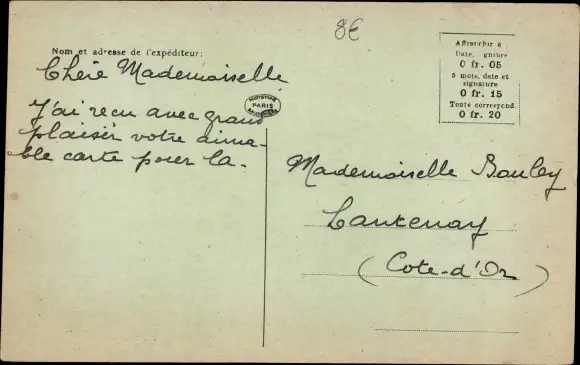 8€
Nom et adresse de l'expéditeur:
Chère Mademoiselle
J'ai reçu avec grand
plaisir votre aima-
ble carte pour la-
PARIS
Affranchir à
Date, gnture
0 fr. 05
5 mots, date et
signature
0 fr. 15
Toute correspond.
0 fr. 20
Mademoiselle Bouley
Lantenay
(Côte-d'Or)